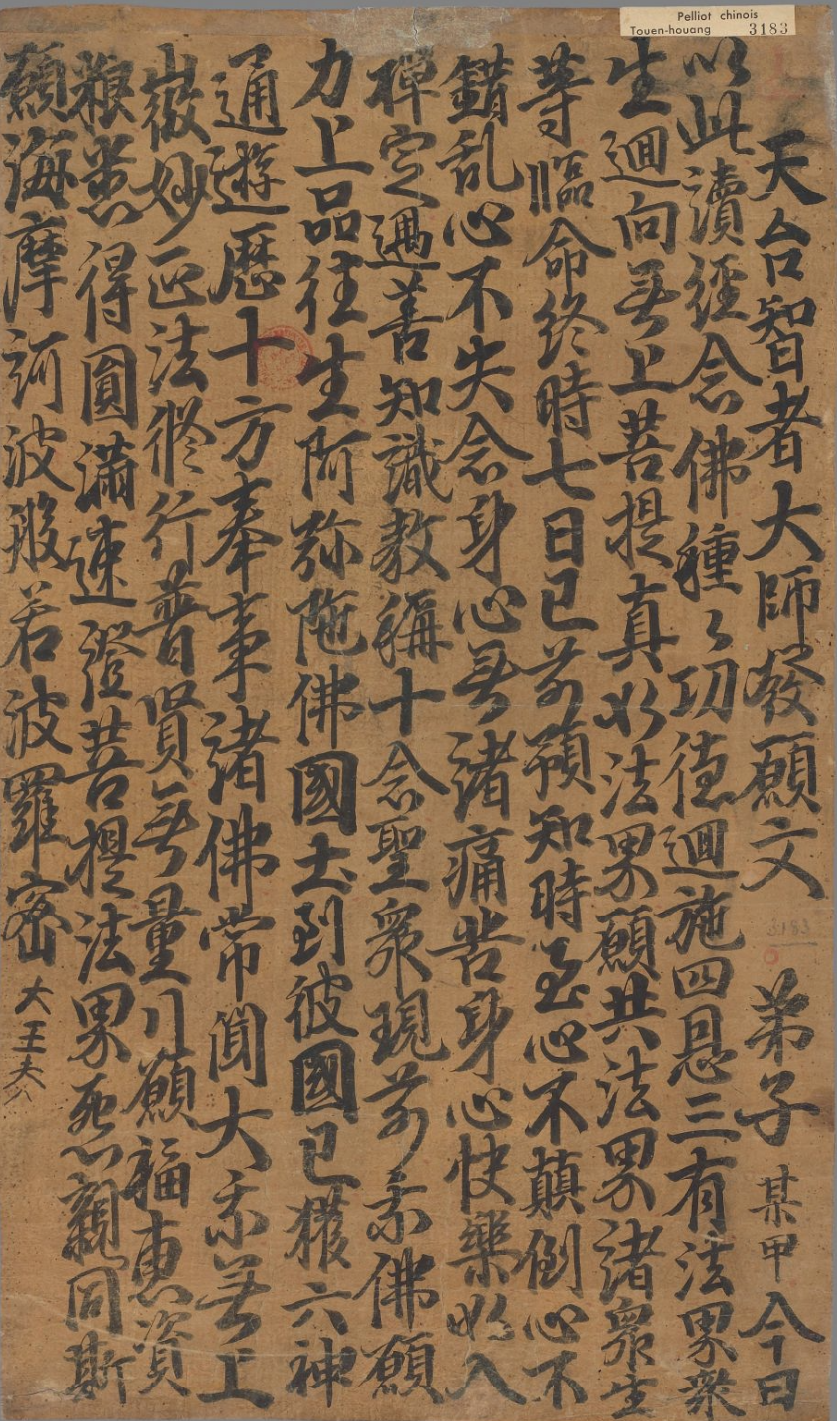 Pelliot chinois
Touen-houang 3183
天台智者大師發願文 弟子某甲今日
以此讀經念佛種々功德迴施四恩三有法界衆
生迴向无上菩提真如法界願共法界諸衆生
等臨命終時七日已前預知時至心不顛倒心不
錯乱心不失念身心无諸痛苦身心快樂如入
禪定遇善知識教稱十念聖衆現前承佛願
力上品往生阿弥陁佛國土到彼國已獲六神
通遊歷十方奉事諸佛常聞大乘无上
微妙正法修行普賢无量行願福惠資
粮悉得圓滿速證菩提法界怨親同斯
願海摩訶般若波羅蜜
大王夫
3183